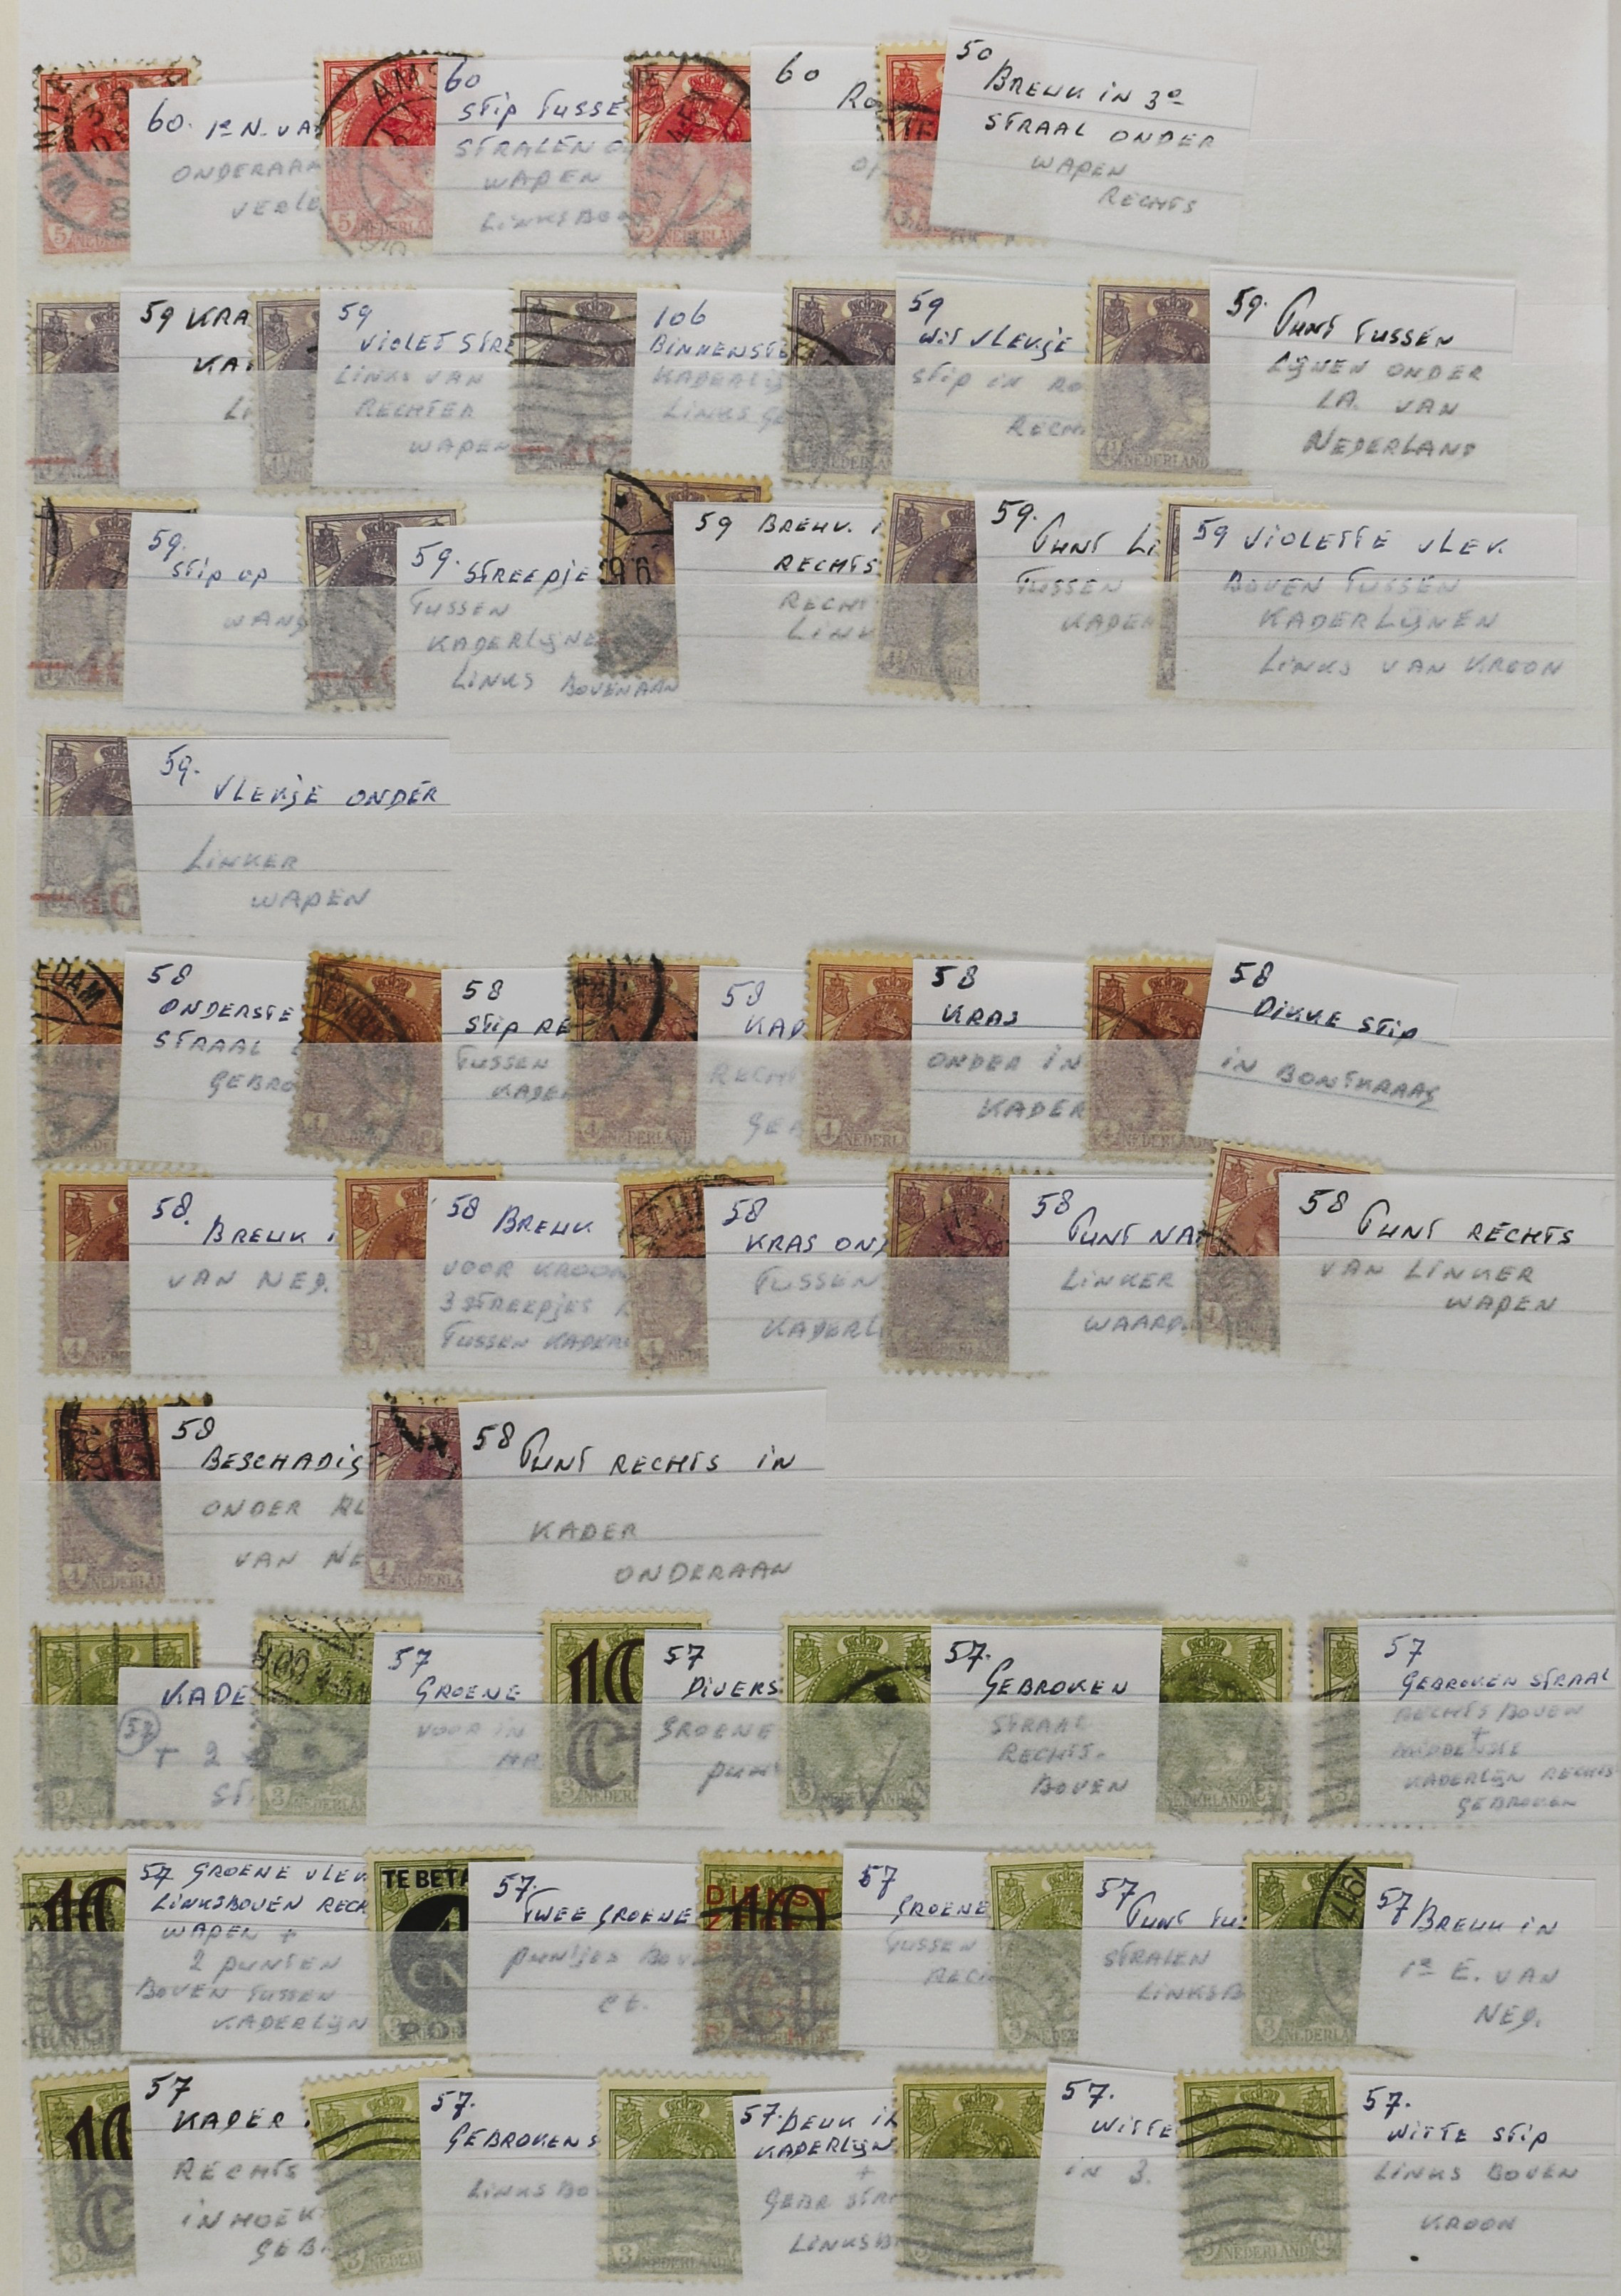 60. 1e N. VA
ONDERAAN
VERLE
60
STIP TUSSE
STRALEN O
WAPEN
LINKSBO
60
RO
OP
50
BREUK IN 3e
STRAAL ONDER
WAPEN
RECHTS
59 KRA
KA
LI
59
VIOLET STRE
LINKS VAN
RECHTER
WAPEN
106
BINNENSTE
KADERLIJ
LINKS GE
59
WIT VLEKJE
STIP IN RO
RECH
59. PUNT TUSSEN
LIJNEN ONDER
LA. VAN
NEDERLAND
59.
STIP OP
WANG
59. STREEPJE
TUSSEN
KADERLIJNE
LINKS BOVENAAN
59 BREUK. I
RECHTS
RECHT
LINK
59.
PUNT LI
TUSSEN
KADER
59 VIOLETTE VLEK.
BOVEN TUSSEN
KADERLIJNEN
LINKS VAN KROON
59.
VLEKJE ONDER
LINKER
WAPEN
EDAM
58
ONDERSTE
STRAAL
GEBRO
58
STIP RE
TUSSEN
KADER
58
KAD
RECHT
GEB
58
KRAS
ONDER IN
KADER
58
DIKKE STIP
IN BONTKRAAG
58.
BREUK I
VAN NED.
58 BREUK
VOOR KROON
3 STREEPJES
TUSSEN KADER
58
KRAS ON
TUSSEN
KADERL
58
PUNT NA
LINKER
WAARD
58 PUNT RECHTS
VAN LINKER
WAPEN
58
BESCHADIG
ONDER
VAN NE
58 PUNT RECHTS IN
KADER
ONDERAAN
KADE
57
+ 2
ST.
57
GROENE
VOOR IN
HA
1C
C
57
DIVERS
GROENE
PUN
57.
GEBROKEN
STRAAL
RECHTS.
BOVEN
57
GEBROKEN STRAAL
RECHTS BOVEN
+
MIDDENSTE
KADERLIJN RECHTS
GEBROKEN
57 GROENE VLEK
LINKSBOVEN RECH
WAPEN +
2 PUNTEN
BOVEN TUSSEN
KADERLIJN
TE BETA
CN
POR
57.
TWEE GROENE
PUNTJES BOV
ct.
DIENST
10
57
GROENE
TUSSEN
RECH
57
PUNT TU
STRALEN
LINKSB
57 BREUK IN
1e E. VAN
NED.
57
KADER
RECHTS
IN HOEK
GEB
57.
GEBROKEN S
LINKS BO
57. DEUK IN
KADERLIJN
+
GEBR STRA
LINKSB
57.
WITTE
IN 3.
57.
WITTE STIP
LINKS BOVEN
KROON